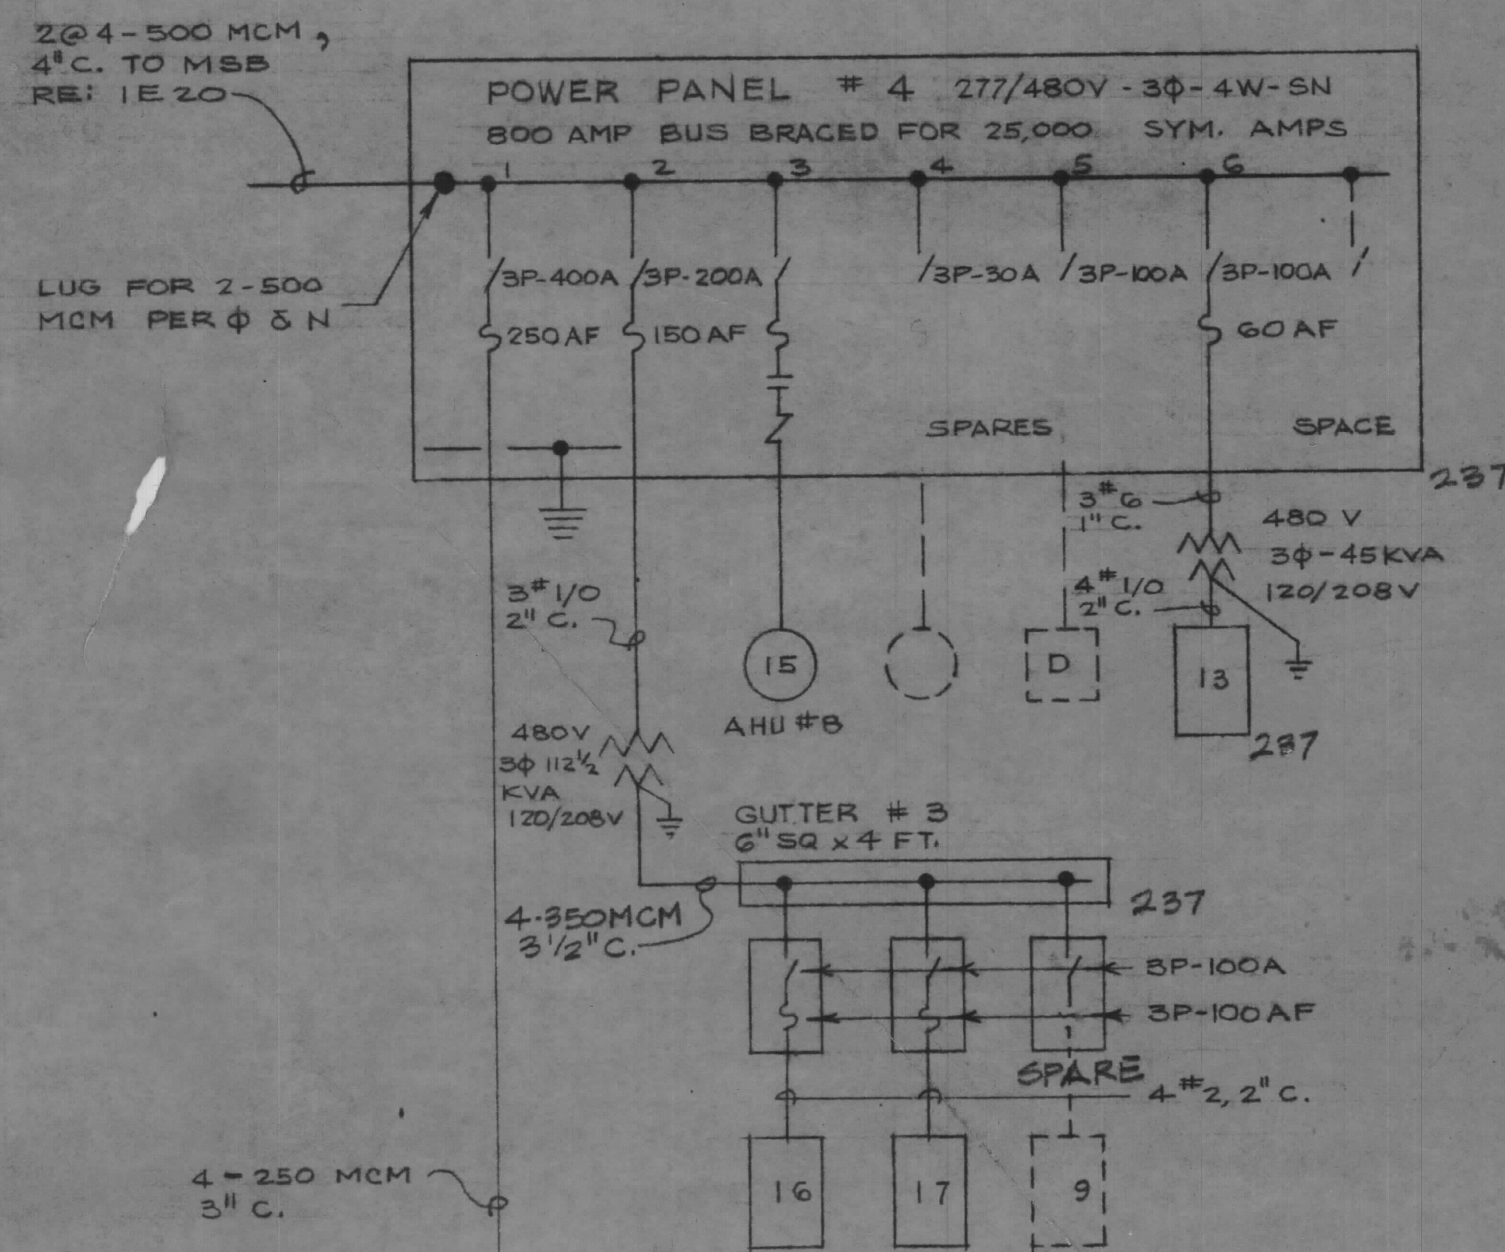 2@4-500 MCM,
4" C. TO MSB
RE: 1E20
POWER PANEL # 4 277/480V - 3Φ - 4W - SN
800 AMP BUS BRACED FOR 25,000 SYM. AMPS
1 2 3 4 5 6
LUG FOR 2-500
MCM PER Φ & N
3P-400A 3P-200A 3P-30A 3P-100A 3P-100A
250AF 150AF 60AF
SPARES SPACE
237
3#6
1" C.
480 V
3Φ-45KVA
120/208V
3#1/0
2" C.
4#1/0
2" C.
15 D 13
AHU #8
237
480V
3Φ 112½
KVA
120/208V
GUTTER # 3
6" SQ x 4 FT.
237
4-350MCM
3 1/2" C.
3P-100A
3P-100AF
SPARE
4#2, 2" C.
4-250 MCM
3" C.
16 17 9